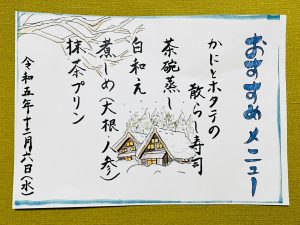 おすすめメニュー
かにとホタテの
散らし寿司
茶碗蒸し
白和え
煮しめ(大根・人参)
抹茶プリン
令和五年十二月六日(水)